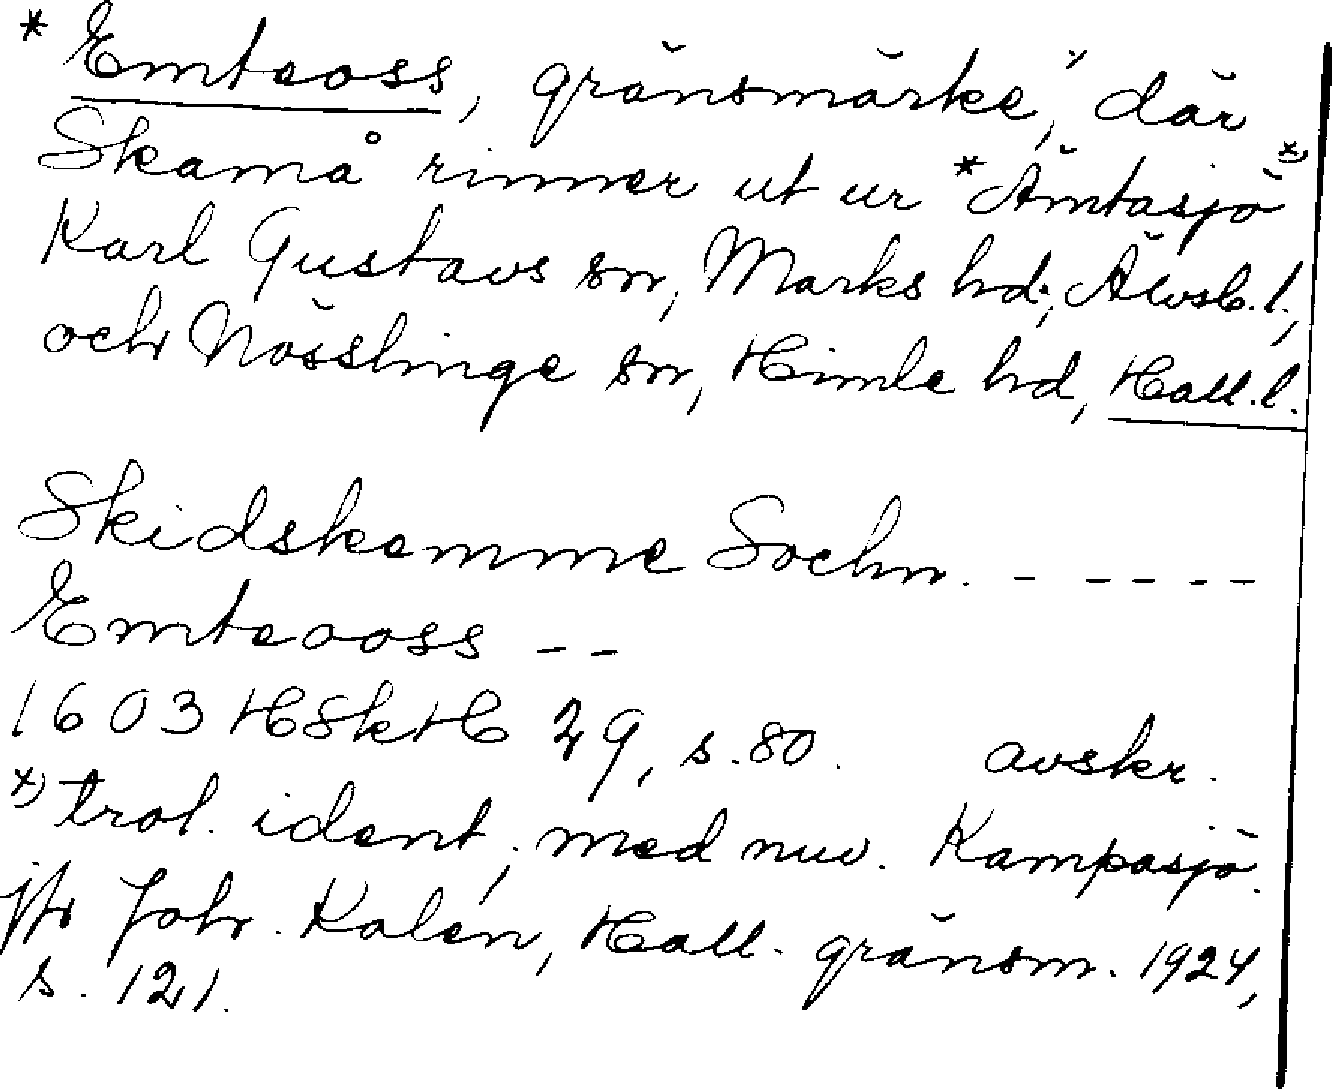 * Emteoss, gränsmärke, "där
Skamå rinner ut ur *Ämtasjö" x)
Karl Gustavs sn, Marks hd, Älvsb. l.,
och Nösslinge sn, Himle hd, Hall. l.
Skidskemme Sochn. - - - - -
Emteooss - -
1603 HSkH 29, s. 80. avskr.
x) trol. ident. med nuv. Kampasjö.
jfr Joh. Kalén, Hall. gränsm. 1924,
s. 121.